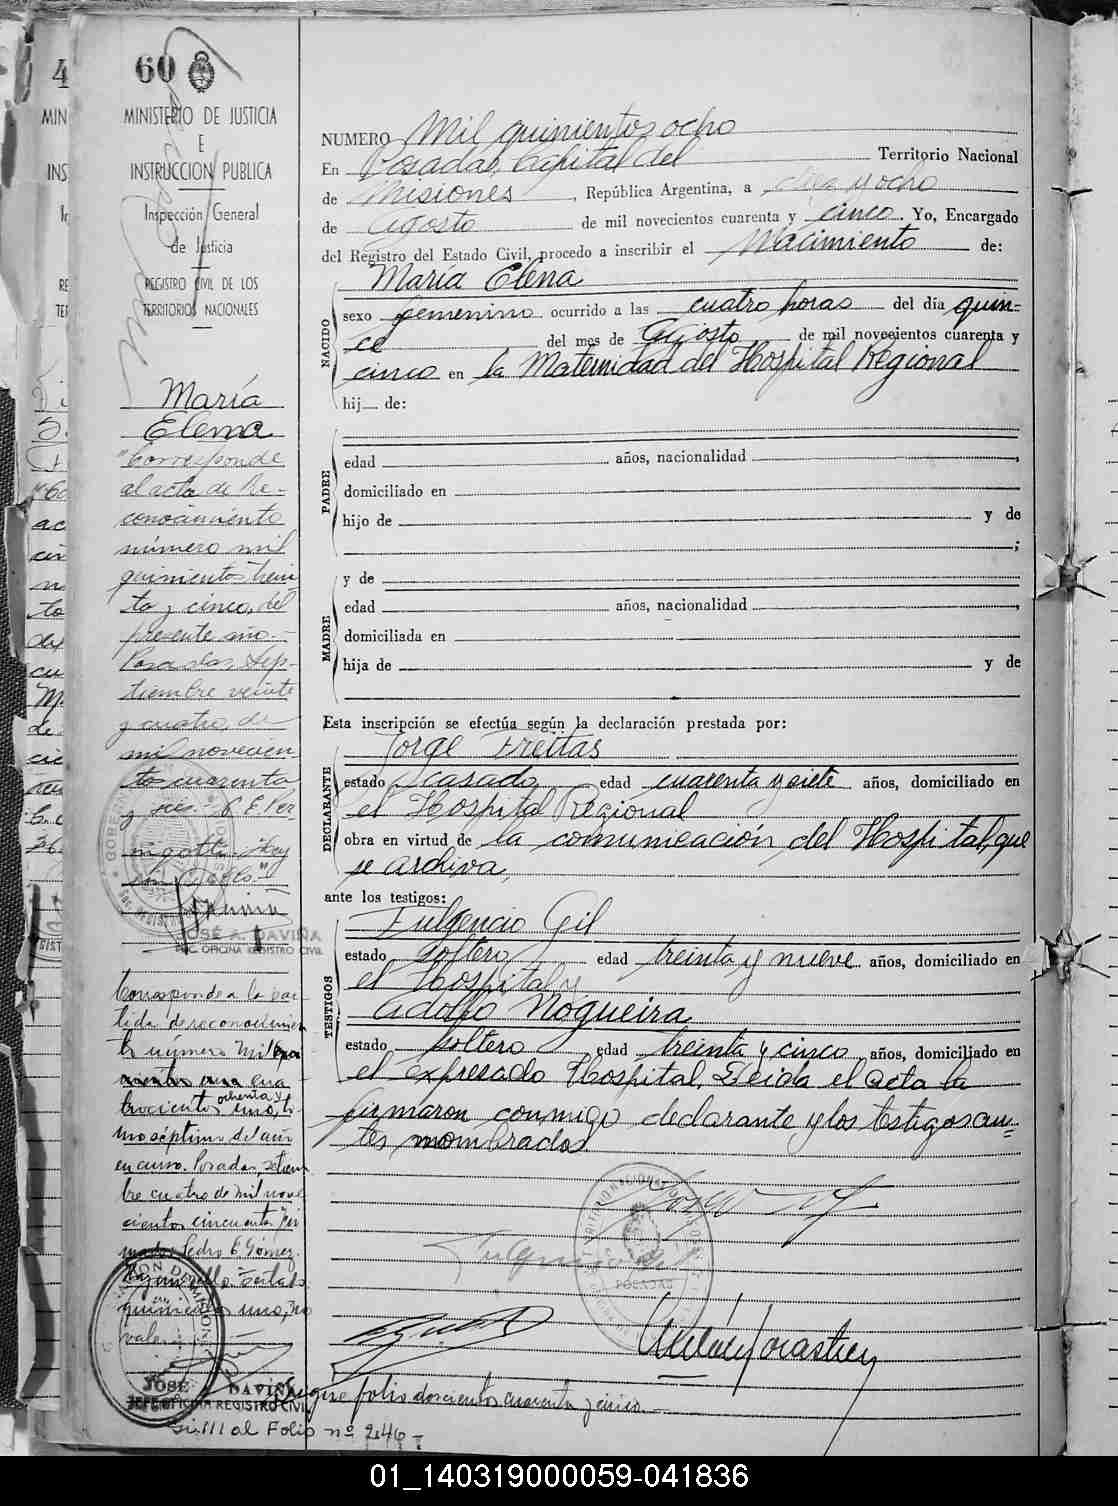 60
MINISTERIO DE JUSTICIA
E
INSTRUCCION PUBLICA
Inspección General
de Justicia
REGISTRO CIVIL DE LOS
TERRITORIOS NACIONALES
María
Elena
"Corresponde
al acta de Re-
conocimiento
número mil
quinientos trein
ta y cinco, del
presente año.-
Posadas, Sep-
tiembre veinte
y cuatro, de
mil novecien
tos cuarenta
y seis.
Hay
un sello."
JOSÉ A. DAVIÑA
OFICINA REGISTRO CIVIL
Corresponde a la par-
tida de reconocimien
to número mil
ochenta y
trocientos uno, to-
mo séptimo del año
en curso. Posadas, setiem
bre cuatro de mil nove
cientos cincuenta. Fir
mado: Pedro C. Gómez.
Hay un sello. Testado:
quinientos uno, no
vale.
JOSÉ DAVIÑA
JEFE OFICINA REGISTRO CIVIL
al Folio nº 246 -
NUMERO Mil quinientos ocho
En Posadas, Capital del Territorio Nacional
de Misiones, República Argentina, a diez y ocho
de Agosto de mil novecientos cuarenta y cinco. Yo, Encargado
del Registro del Estado Civil, procedo a inscribir el Nacimiento de:
María Elena
NACIDO
sexo femenino ocurrido a las cuatro horas del día quin-
ce del mes de Agosto de mil novecientos cuarenta y
cinco en la Maternidad del Hospital Regional
hij de:
PADRE
edad años, nacionalidad ,
domiciliado en
hijo de y de
;
y de
MADRE
edad años, nacionalidad ,
domiciliada en
hija de y de
Esta inscripción se efectúa según la declaración prestada por:
Jorge Freitas
DECLARANTE
estado casado edad cuarenta y siete años, domiciliado en
el Hospital Regional
obra en virtud de la comunicación del Hospital, que
se archiva,
ante los testigos:
Fulgencio Gil
TESTIGOS
estado soltero edad treinta y nueve años, domiciliado en
el Hospital y
Adolfo Nogueira
estado soltero edad treinta y cinco años, domiciliado en
el expresado Hospital. Leida el acta la
firmaron conmigo declarante y los testigos an=
tes nombrados.
POSADAS
Sigue folio doscientos cuarenta y cinco.-
01_140319000059-041836